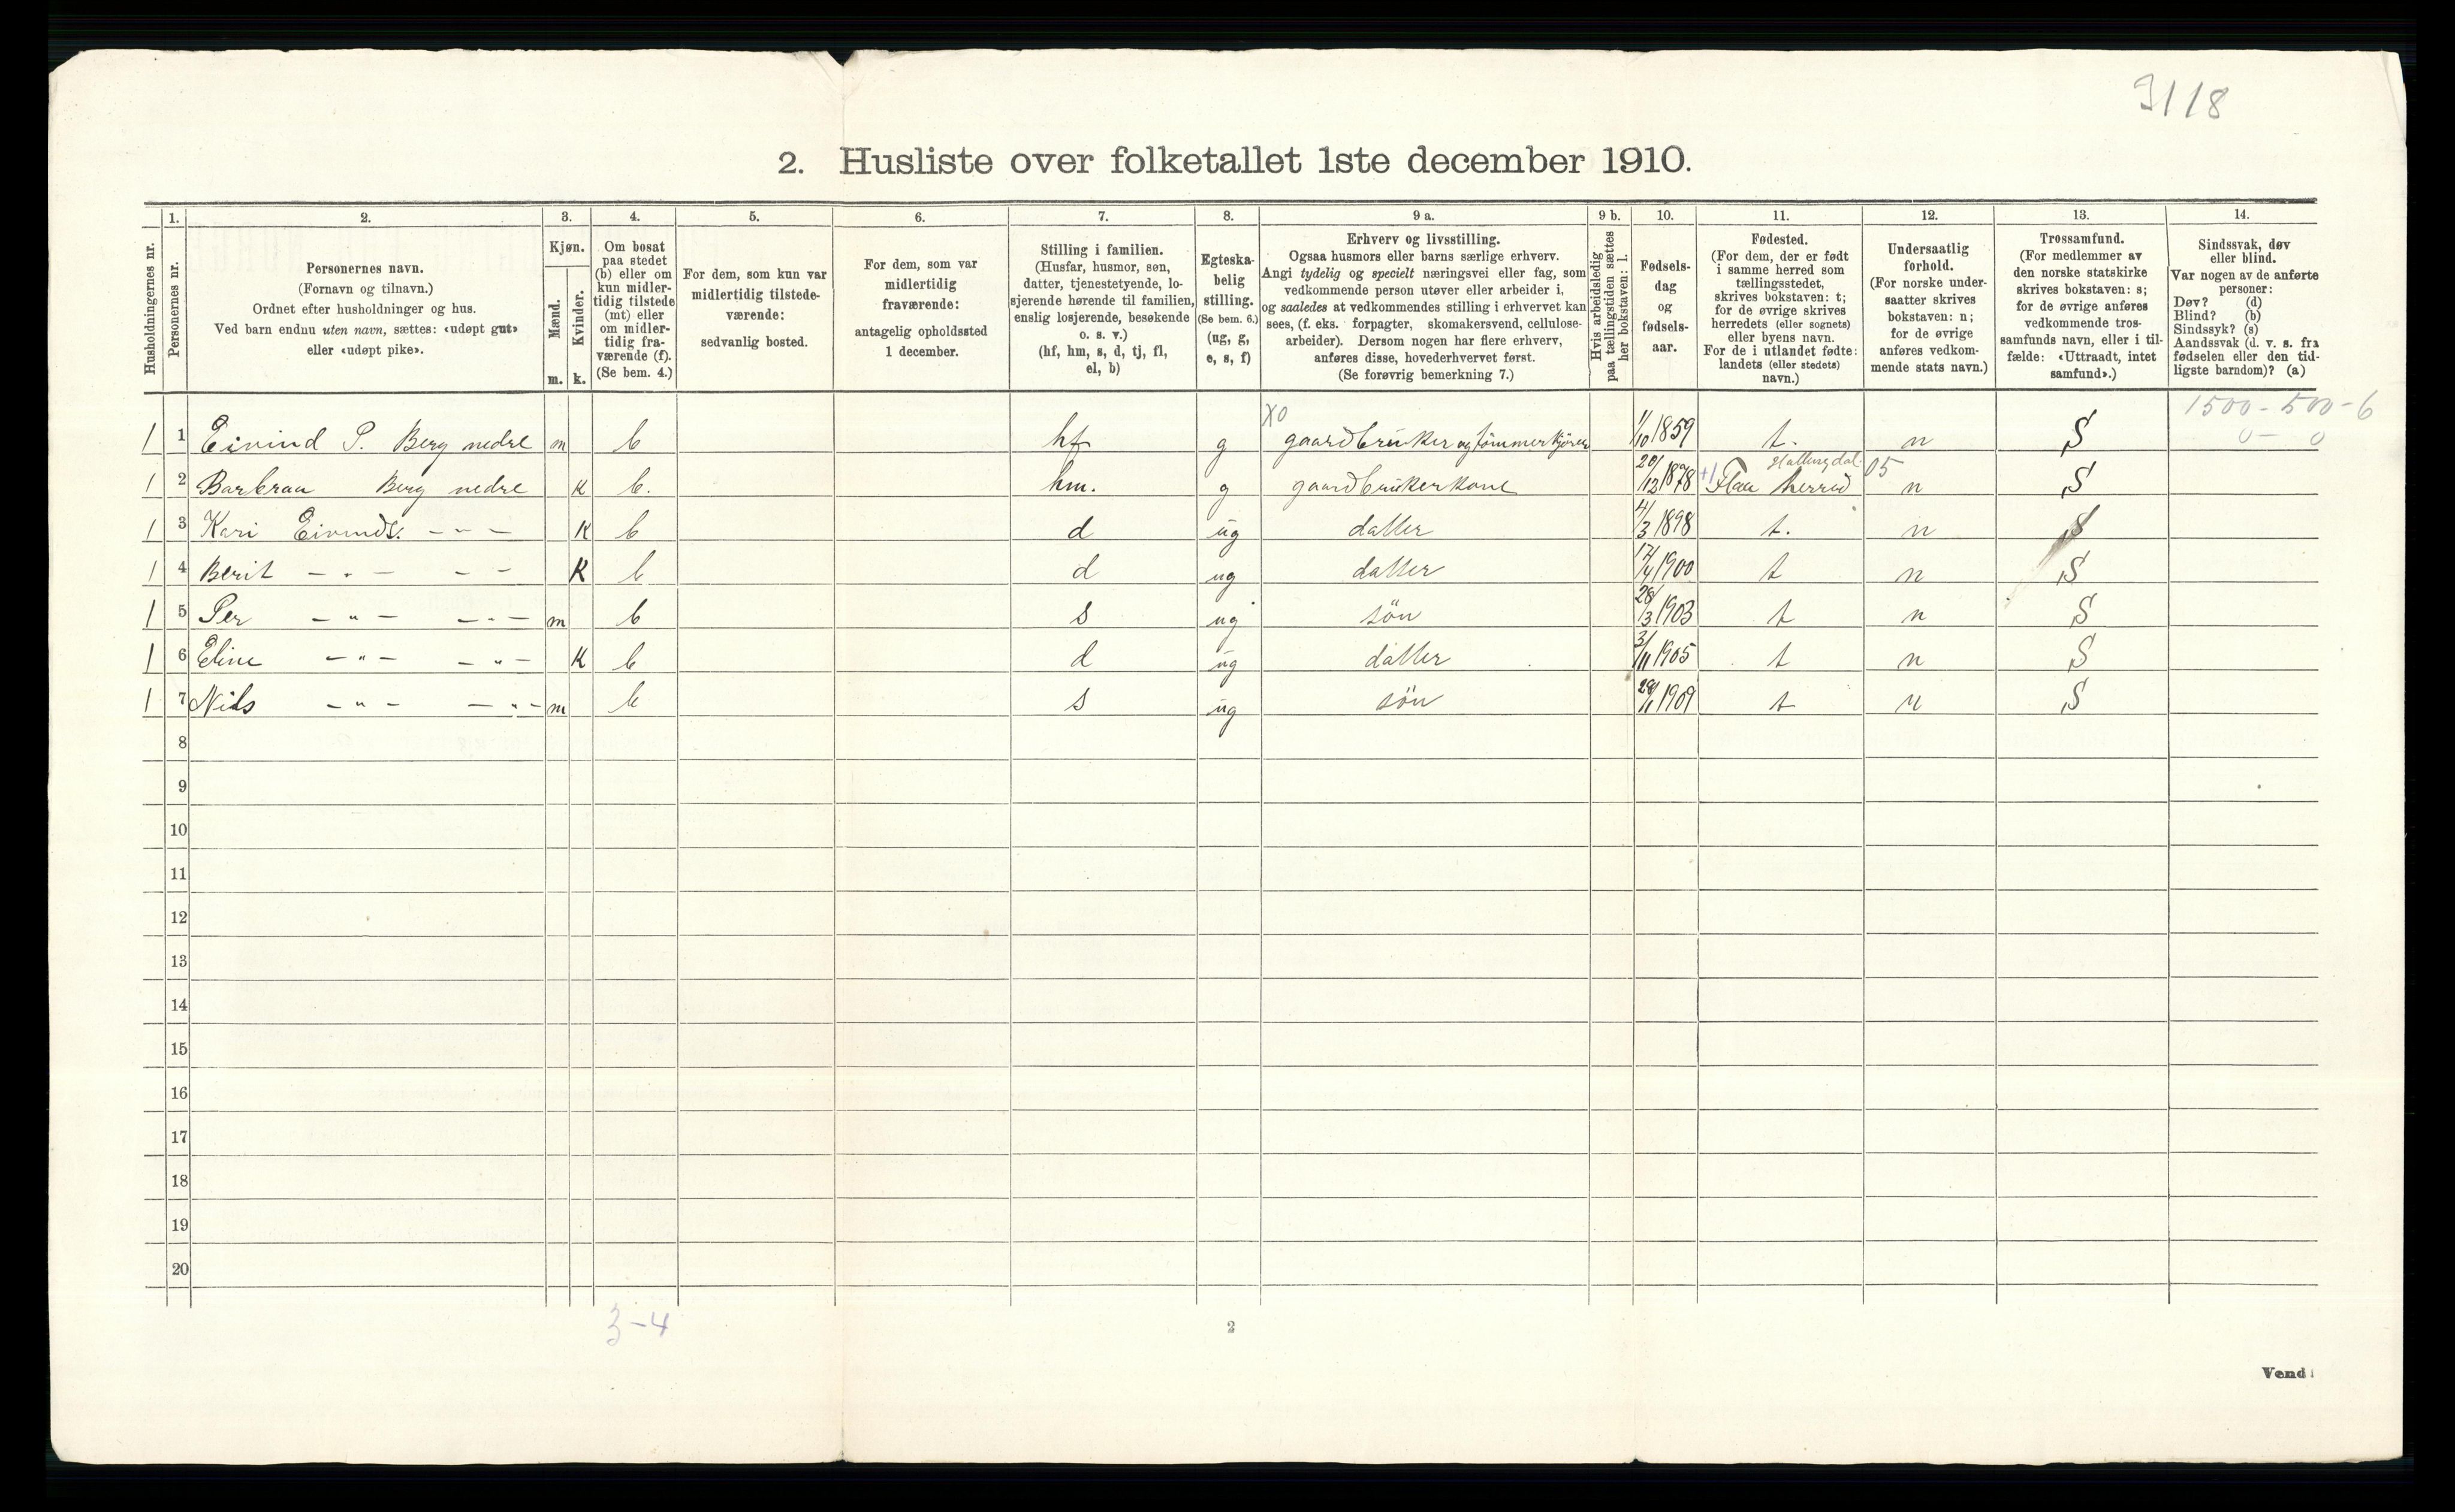 3118
2. Husliste over folketallet 1ste december 1910.
Husholdningernes nr.
1.
Personernes nr.
2.
Personernes navn.
(Fornavn og tilnavn.)
Ordnet efter husholdninger og hus.
Ved barn endnu uten navn, sættes: «udøpt gut»
eller «udøpt pike».
3.
Kjøn.
Mænd.
Kvinder.
m. k.
4.
Om bosat
paa stedet
(b) eller om
kun midler-
tidig tilstede
(mt) eller
om midler-
tidig fra-
værende (f).
(Se bem. 4.)
5.
For dem, som kun var
midlertidig tilstede-
værende:
sedvanlig bosted.
6.
For dem, som var
midlertidig
fraværende:
antagelig opholdssted
1 december.
7.
Stilling i familien.
(Husfar, husmor, søn,
datter, tjenestetyende, lo-
sjerende hørende til familien,
enslig losjerende, besøkende
o. s. v.)
(hf, hm, s, d, tj, fl,
el, b)
8.
Egteska-
belig
stilling.
(Se bem. 6.)
(ug, g,
e, s, f)
9 a.
Erhverv og livsstilling.
Ogsaa husmors eller barns særlige erhverv.
Angi tydelig og specielt næringsvei eller fag, som
vedkommende person utøver eller arbeider i,
og saaledes at vedkommendes stilling i erhvervet kan
sees, (f. eks. forpagter, skomakersvend, cellulose-
arbeider). Dersom nogen har flere erhverv,
anføres disse, hovederhvervet først.
(Se forøvrig bemerkning 7.)
9 b.
Hvis arbeidsledig
paa tællingstiden sættes
her bokstaven: l.
10.
Fødsels-
dag
og
fødsels-
aar.
11.
Fødested.
(For dem, der er født
i samme herred som
tællingsstedet,
skrives bokstaven: t;
for de øvrige skrives
herredets (eller sognets)
eller byens navn.
For de i utlandet fødte:
landets (eller stedets)
navn.)
12.
Undersaatlig
forhold.
(For norske under-
saatter skrives
bokstaven: n;
for de øvrige
anføres vedkom-
mende stats navn.)
13.
Trossamfund.
(For medlemmer av
den norske statskirke
skrives bokstaven: s;
for de øvrige anføres
vedkommende tros-
samfunds navn, eller i til-
fælde: «Uttraadt, intet
samfund».)
14.
Sindssvak, døv
eller blind.
Var nogen av de anførte
personer:
Døv? (d)
Blind? (b)
Sindssyk? (s)
Aandssvak (d. v. s. fra
fødselen eller den tid-
ligste barndom)? (a)
X0 1500 - 500 - 6
1 1 Eivind P. Berg nedre m b hf g gaardbruker og tömmerkjörer 1/10 1859 t. n S 0 - 0
Hallingdal. 05
1 2 Barbraa Berg nedre K b. hm. g gaardbrukerkone 20/12 1878 +1 Flaa herred n S
1 3 Kari Eivinds. - " - K b d ug datter 4/3 1898 t. n S
1 4 Berit - " - - - K b d ug datter 17/4 1900 t n S
1 5 Per - " - - " - m b s ug sön 28/3 1903 t n S
1 6 Eline - " - - " - K b d ug datter 3/11 1905 t n S
1 7 Nils - " - - " - m b s ug sön 28/1 1909 t n S
8
9
10
11
12
13
14
15
16
17
18
19
20
3-4
2
Vend!